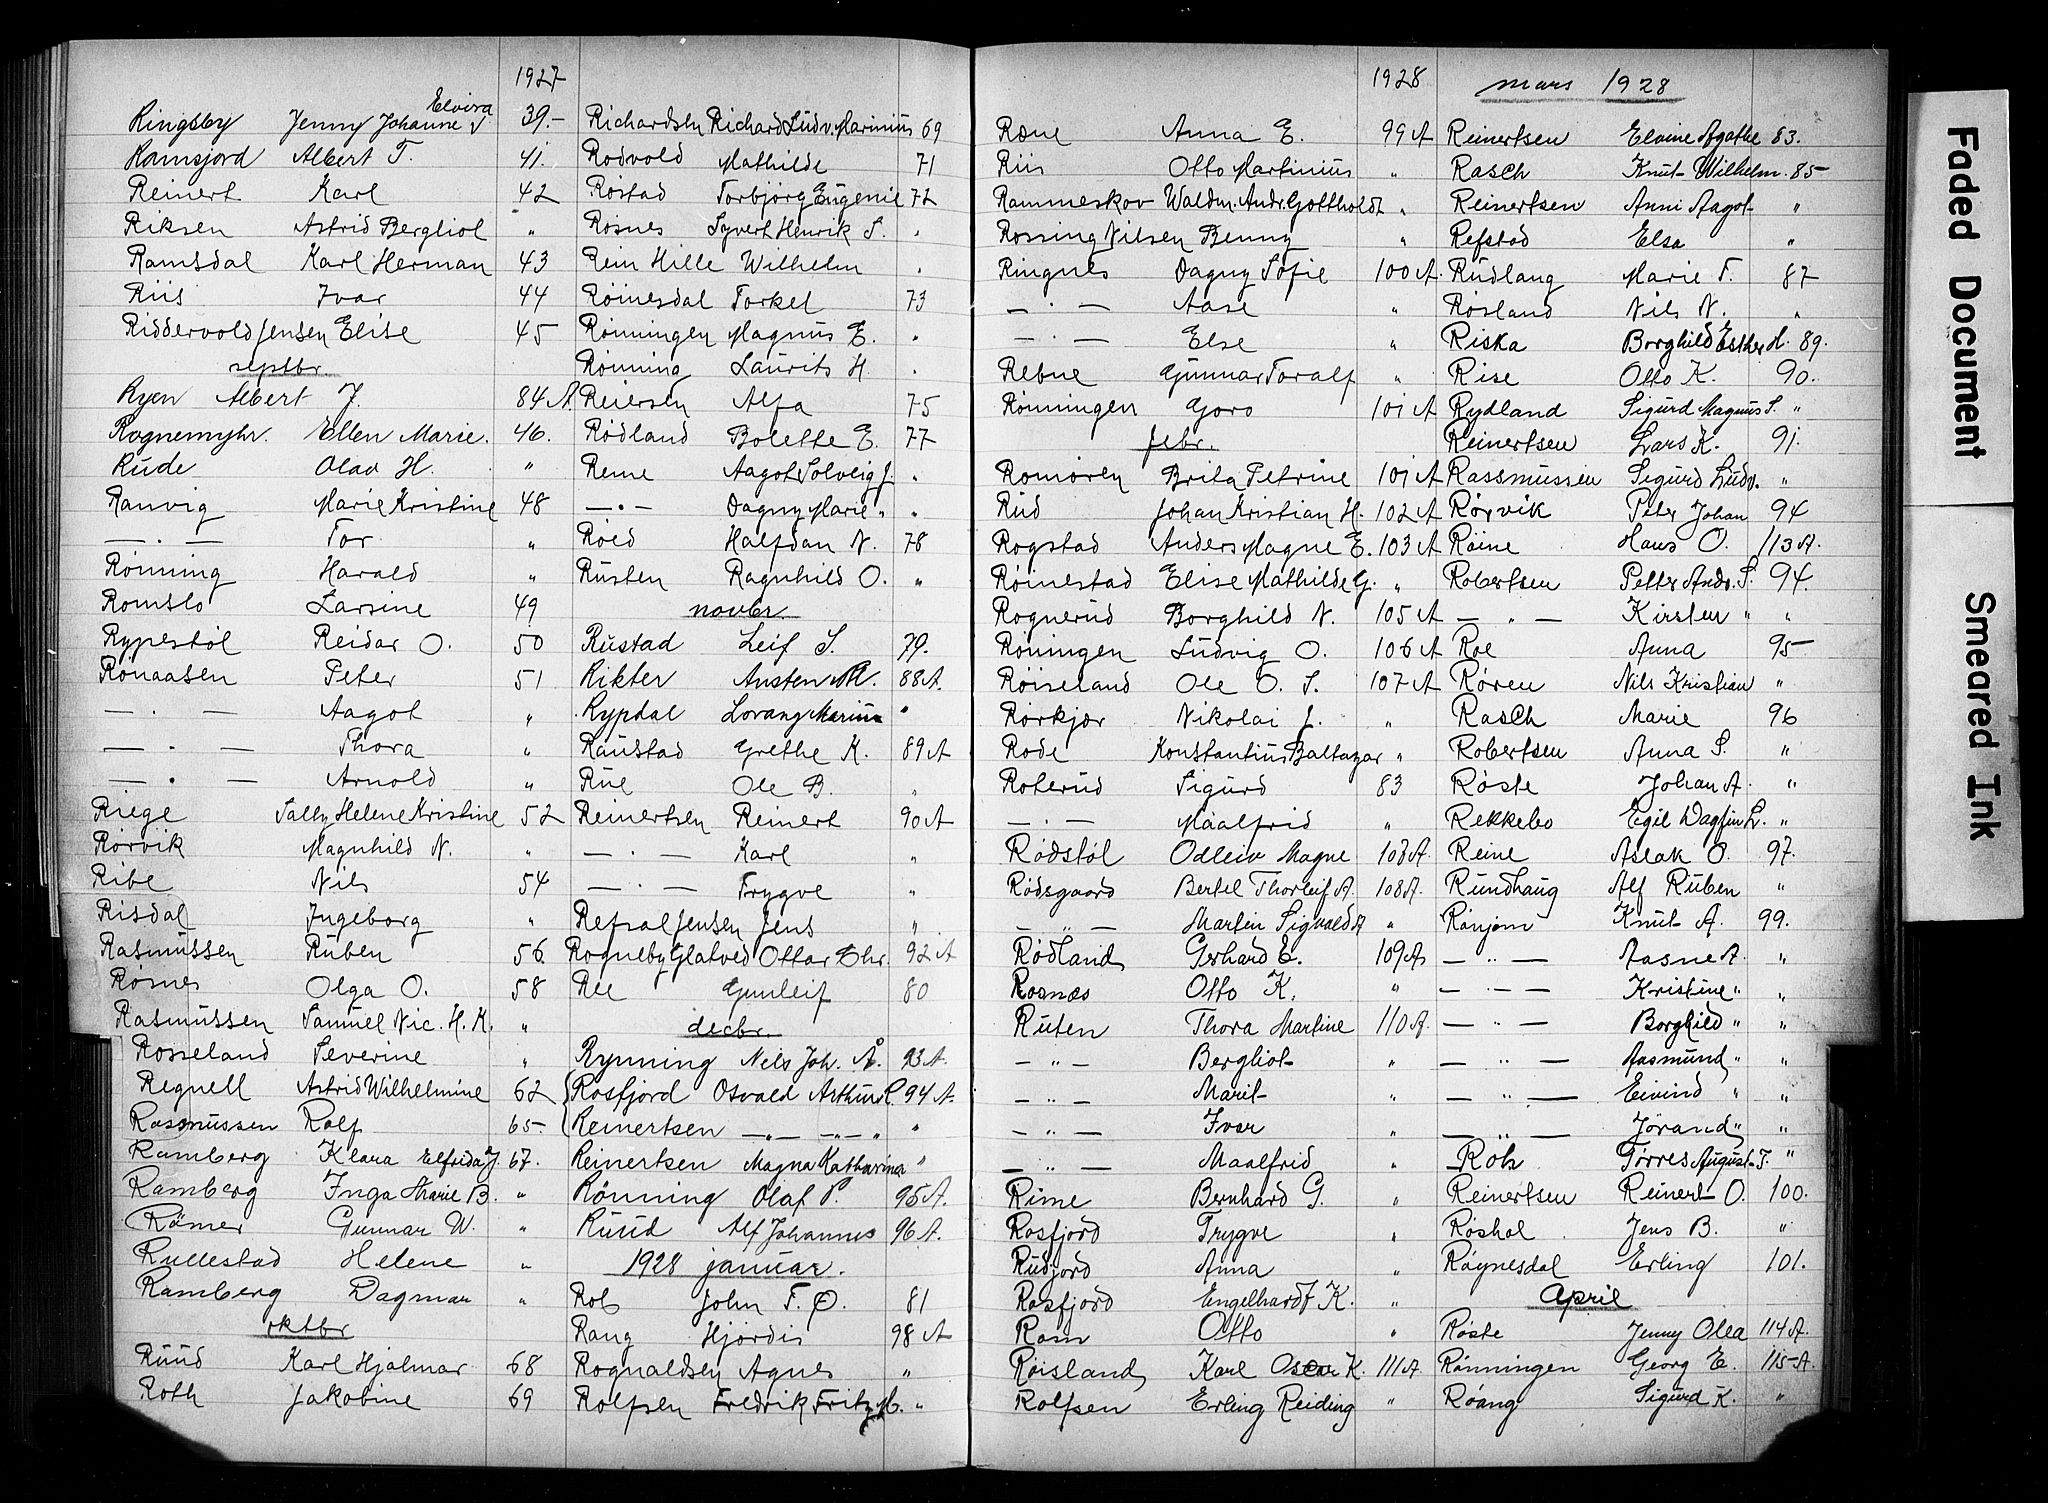 1927
Ringsby Jenny Johanne Elvira 39.-
Ramsjord Albert T. 41.
Reinert Karl 42
Riksen Astrid Bergliot "
Ramsdal Karl Herman 43
Riis Ivar 44
Riddervold Jensen Elise 45
septbr.
Ryen Albert J. 84 A.
Rognemyhr. Ellen Marie. 46.
Rude Olav H. "
Ranvig Marie Kristine 48
— . — Tor "
Rønning Harald "
Romslo Larsine 49
Rypestøl Reidar O. 50
Rønaasen Peter 51
— . — Aagot "
— . — Thora "
— . — Arnold "
Riege Sally Helene Kristine 52
Rørvik Magnhild N. "
Ribe Nils 54
Risdal Ingeborg "
Rasmussen Ruben 56
Røsnes Olga O. 58
Rasmussen Samuel Nic. H. K. "
Rosseland Severine "
Regnell Astrid Wilhelmine 62
Rasmussen Rolf 65-
Ramberg Klara Elfrida J. 67.
Ramberg Inga Marie B. "
Rømer Gunnar W. "
Rullestad Helene "
Ramberg Dagmar "
oktbr
Ruud Karl Hjalmar 68
Roth Jakobine 69
Richardsen Richard Ludv. Marinius 69
Rodvold Mathilde 71
Røstad Torbjørg Eugenie 72
Røsnes Syvert Henrik S. "
Rein Hille Wilhelm "
Røinesdal Torkel 73
Rønningen Magnus E. "
Rønning Laurits H. "
Reiersen Alfa 75
Rødland Bolette E. 77
Reme Aagot Solveig J. "
— . — Dagny Marie " "
Røed Halfdan N. 78
Rusten Ragnhild O. "
novbr.
Rustad Leif S. 79.
Rikter Austen M. 88 A.
Rypdal Lorang Marius "
Raustad Grethe K. 89 A
Rue Ole B. "
Reinertsen Reinert 90 A
— . — Karl "
— . — Trygve "
Refsal Jensen Jens "
Rogneby Glatved Ottar Chr. 92 A
Ree Gunleif 80
decbr.
Rynning Nils Joh. Å. 93 A.
Rosfjord Osvald Arthur R. 94 A.
Reinertsen —"— —"— " "
Reinertsen Magna Katharina "
Rønning Olaf P. 95 A.
Ruud Alf Johannes 96 A.
1928 januar.
Rob John F. Ø. 81
Rang Hjørdis 98 A
Rognaldsen Agnes "
Rolfsen Fredrik Fritz M. "
1928
Ræne Anna E. 99 A
Riis Otto Martinius "
Rammeskov Waldm. Andr. Gottholdt "
Rossing Nilsen Benny "
Ringnes Dagny Sofie 100 A.
— . — Aase "
— . — Else "
Rebne Gunnar Toralf "
Rønningen Goro 101 A
febr.
Romøren Brita Petrine 101 A
Rud Johan Kristian H. 102 A
Rogstad Anders Magne E. 103 A
Røinestad Elise Mathilde G. "
Rognerud Borghild N. 105 A
Røningen Ludvig O. 106 A
Røiseland Ole O. S. 107 A
Rørkjær Nikolai J. "
Rode Konstantius Baltazar "
Roterud Sigurd 83
— . — Maalfrid "
Rødstøl Odleiv Magne 108 A.
Rødsgaard Bertel Thorleif A. 108 A.
— " — Martin Sigvald A "
Rødland Gerhard E. 109 A
Rosnæs Otto K. "
Ruten Thora Martine 110 A.
— " — Bergliot "
— " — Marit "
— " — Ivar "
— " — Maalfrid "
Rime Bernhard G. "
Rosfjord Trygve "
Rudjord Anna "
Rosfjord Engelhardt K. "
Ram Otto "
Røisland Karl Oscar K. 111 A
Rolfsen Erling Reiding "
mars 1928
Reinertsen Elvine Agathe 83.
Rasch Knut Wilhelm. 85-
Reinertsen Anni Aagot "
Refstad Elsa "
Rudlang Marie T. 87
Røsland Nils N. "
Riska Borghild Esther H. 89.
Rise Otto K. 90.
Rydland Sigurd Magnus S. "
Reinertsen Lars K. 91.
Rassmussen Sigurd Ludv. "
Rørvik Peter Johan 94
Røine Hans O. 113 A.
Robertsen Petter Andr. S. 94.
— " — Kirsten " "
Roe Anna 95-
Røren Nils Kristian "
Rasch Marie 96
Robertsen Anna S. "
Røste Johan A. "
Rekkebo Egil Dagfin L. "
Reine Aslak O. 97.
Rundhaug Alf Ruben "
Rønjom Knut A. 99.
— " — Aasne A. "
— " — Kristine " "
— " — Borghild " "
— " — Aasmund " "
— " — Eivind " "
— " — Jørand " "
Rob Tørres August T. "
Reinertsen Reinert O. 100.
Røshol Jens B. "
Røynesdal Erling 101.
April
Røste Jenny Olea 114 A.
Rønningen Georg E. 115 A.
Røang Sigurd K. "
Faded Document
Smeared Ink